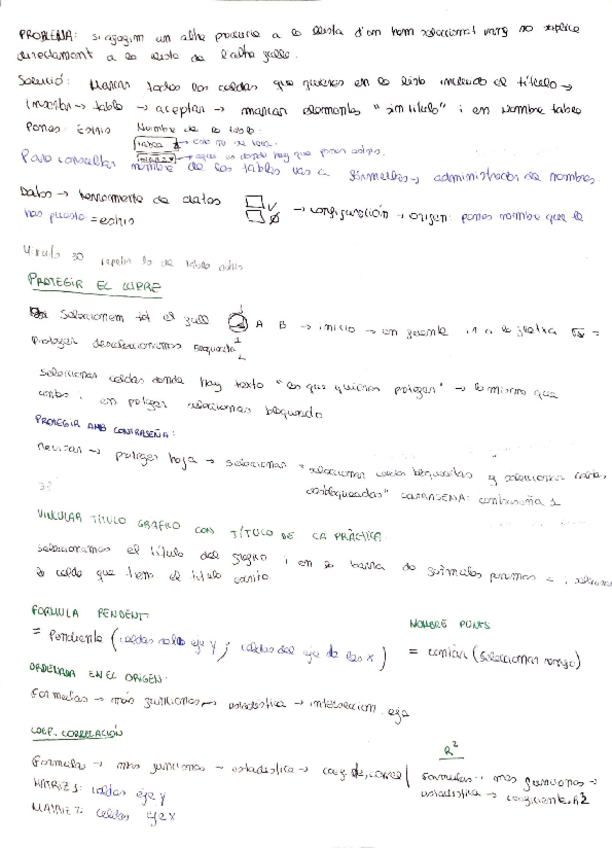 PROBLEMA: si afegim un altre producte a la llista d'un hem seleccionat no s'aplica
directament a la llista de l'altre full.
Solució: Marcar todas las celdas que quieres en la lista incluido el título →
insertar → tabla → aceptar → marcar elementos "sin título" i en nombre tabla
Pones: Estris Nombre de la tabla:
tabla → esto no se toca.
→ aqui es donde hay que poner estris.
Para consultar nombre de las tablas vas a fórmulas → administrador de nombres.
Datos → herramienta de datos → configuración → origen: pones nombre que le
has puesto = estris
PROTEGIR EL LLIBRE
Seleccionem tot el full A B → inicio → en fuente
proteger deseleccionamos bloqueada
seleccionas celdas donde hay texto "las que quieras proteger" → lo mismo que
antes i en proteger seleccionas bloqueado
PROTEGIR AMB CONTRASEÑA:
revisar → proteger hoja → seleccionar "seleccionar celdas bloqueadas y seleccionar celdas
desbloqueadas" CONTRASEÑA: contraseña 1
VINCULAR TÍTULO GRAFICO CON TÍTULO DE LA PRÀCTICA:
seleccionamos el título del grafico i en la barra de fórmulas ponemos = i
la celda que tiene el título escrito
FORMULA PENDENT
= Pendiente (celdas eje Y; celdas del eje de las X)
NOMBRE PUNTS
= contar (seleccionar rango)
ORDENADA EN EL ORIGEN:
Formulas → más funciones → estadística → interseccion eje
COEF. CORRELACIÓN
Formulas → mas funciones → estadística → coef. de. correl
MATRIZ 1: celdas eje y
MATRIZ 2: celdas eje x
R²
formulas → mas funciones →
estadística → coeficiente R2